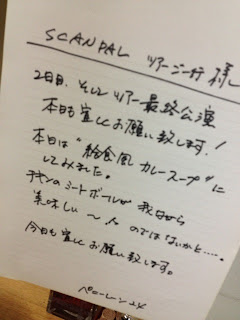 SCANDAL ツアー一行 様
2日目、そしてツアー最終公演
本日も宜しくお願い致します!
本日は"給食風カレースープ"に
してみました。
チキンのミートボールが 我ながら
美味しい〜 のではないかと……。
今日も宜しくお願い致します。